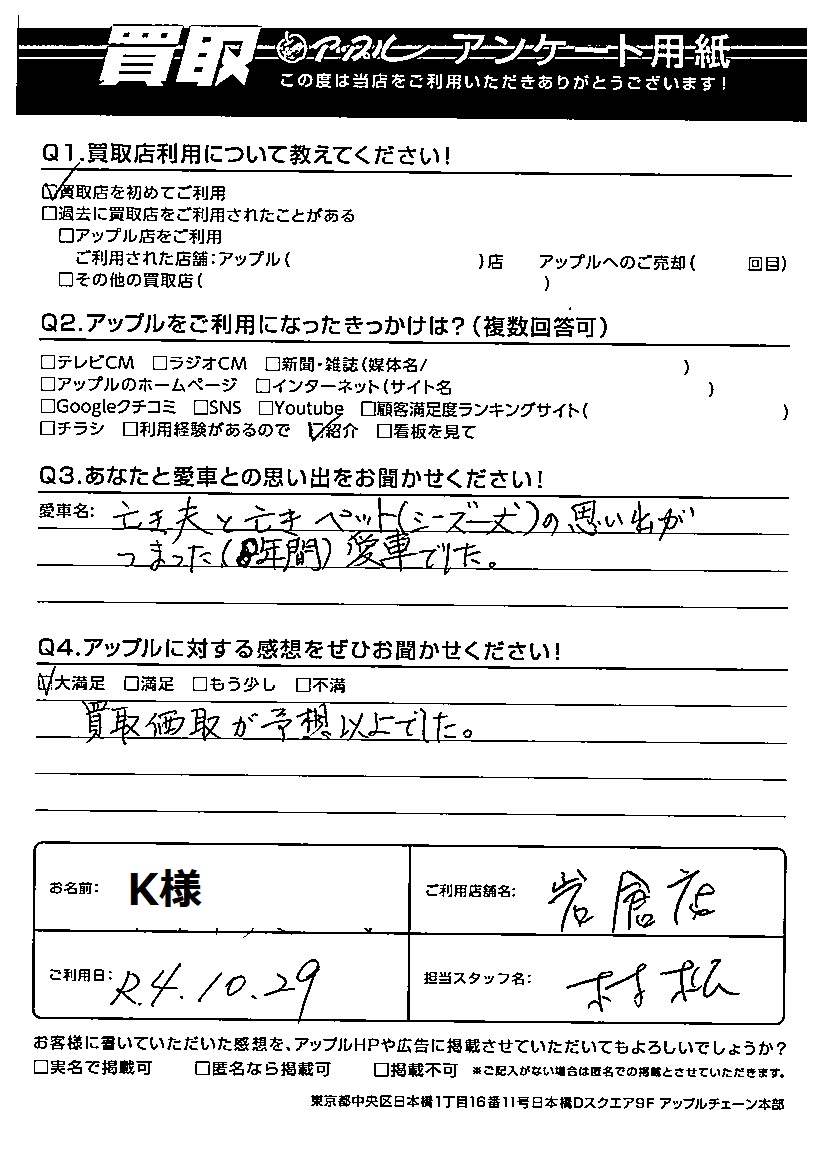 買取 アップル アンケート用紙
この度は当店をご利用いただきありがとうございます!
Q1.買取店利用について教えてください!
☑買取店を初めてご利用
□過去に買取店をご利用されたことがある
□アップル店をご利用
ご利用された店舗:アップル( )店 アップルへのご売却( 回目)
□その他の買取店( )
Q2.アップルをご利用になったきっかけは?(複数回答可)
□テレビCM □ラジオCM □新聞・雑誌(媒体名/ )
□アップルのホームページ □インターネット(サイト名 )
□Googleクチコミ □SNS □Youtube □顧客満足度ランキングサイト( )
□チラシ □利用経験があるので ☑紹介 □看板を見て
Q3.あなたと愛車との思い出をお聞かせください!
愛車名: 亡き夫と亡きペット(シーズー犬)の思い出が
つまった(8年間)愛車でした。
Q4.アップルに対する感想をぜひお聞かせください!
☑大満足 □満足 □もう少し □不満
買取価取が予想以上でした。
お名前: K様 ご利用店舗名: 岩倉店
ご利用日: R.4.10.29 担当スタッフ名: 村松
お客様に書いていただいた感想を、アップルHPや広告に掲載させていただいてもよろしいでしょうか?
□実名で掲載可 □匿名なら掲載可 □掲載不可 ※ご記入がない場合は匿名での掲載とさせていただきます。
東京都中央区日本橋1丁目16番11号日本橋Dスクエア9F アップルチェーン本部